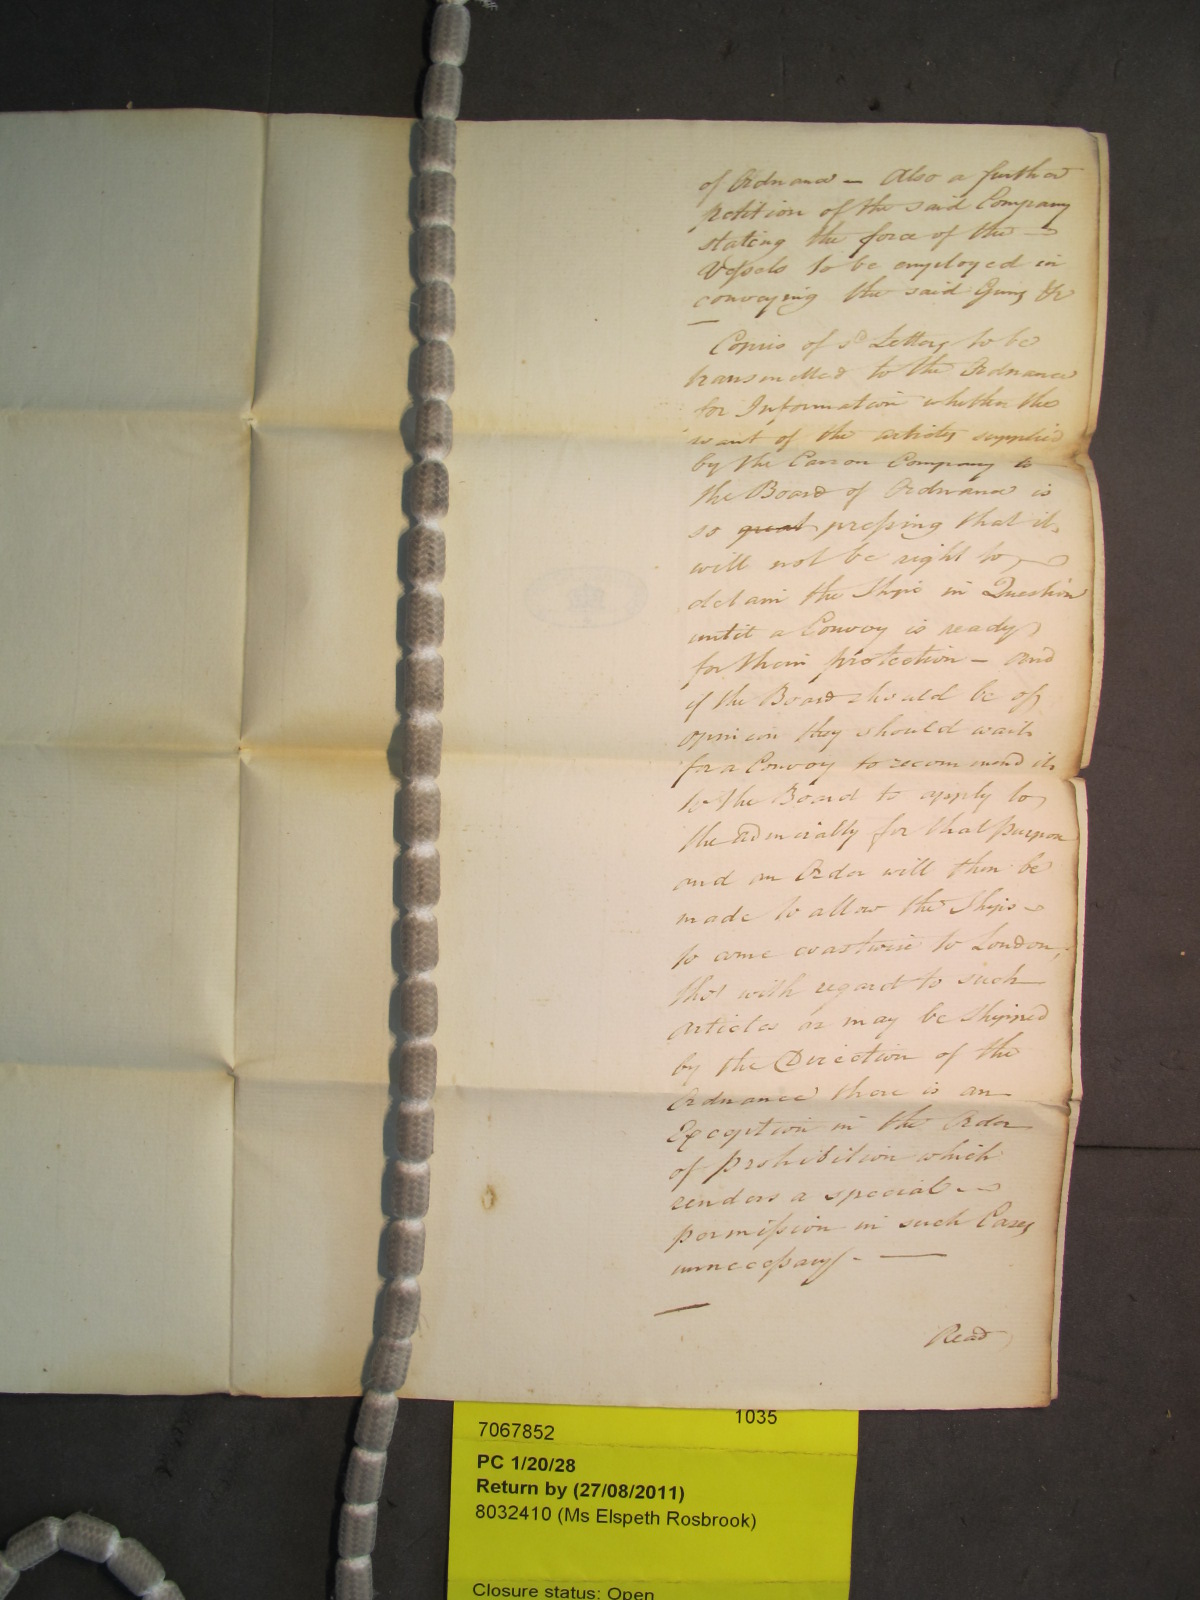 of Ordnance — Also a further
petition of the said Company
stating the force of the
Vessels to be employed in
conveying the said Guns &c
Copies of sd Letters to be
transmitted to the Ordnance
for Information whether the
want of the articles supplied
by the Carron Company to
the Board of Ordnance is
so great pressing that it
will not be right to
detain the Ships in Question
until a Convoy is ready
for their protection — and
if the Board should be of
opinion they should wait
for a Convoy to recommend it
to the Board to apply to
the Admiralty for that purpose
and an Order will then be
made to allow the Ships
to come coastwise to London,
tho' with regard to such
articles as may be shipped
by the Direction of the
Ordnance there is an
Exception in the Order
of prohibition which
renders a special
permission in such Cases
unnecessary. —
Read
1035
7067852
PC 1/20/28
Return by (27/08/2011)
8032410 (Ms Elspeth Rosbrook)
Closure status: Open